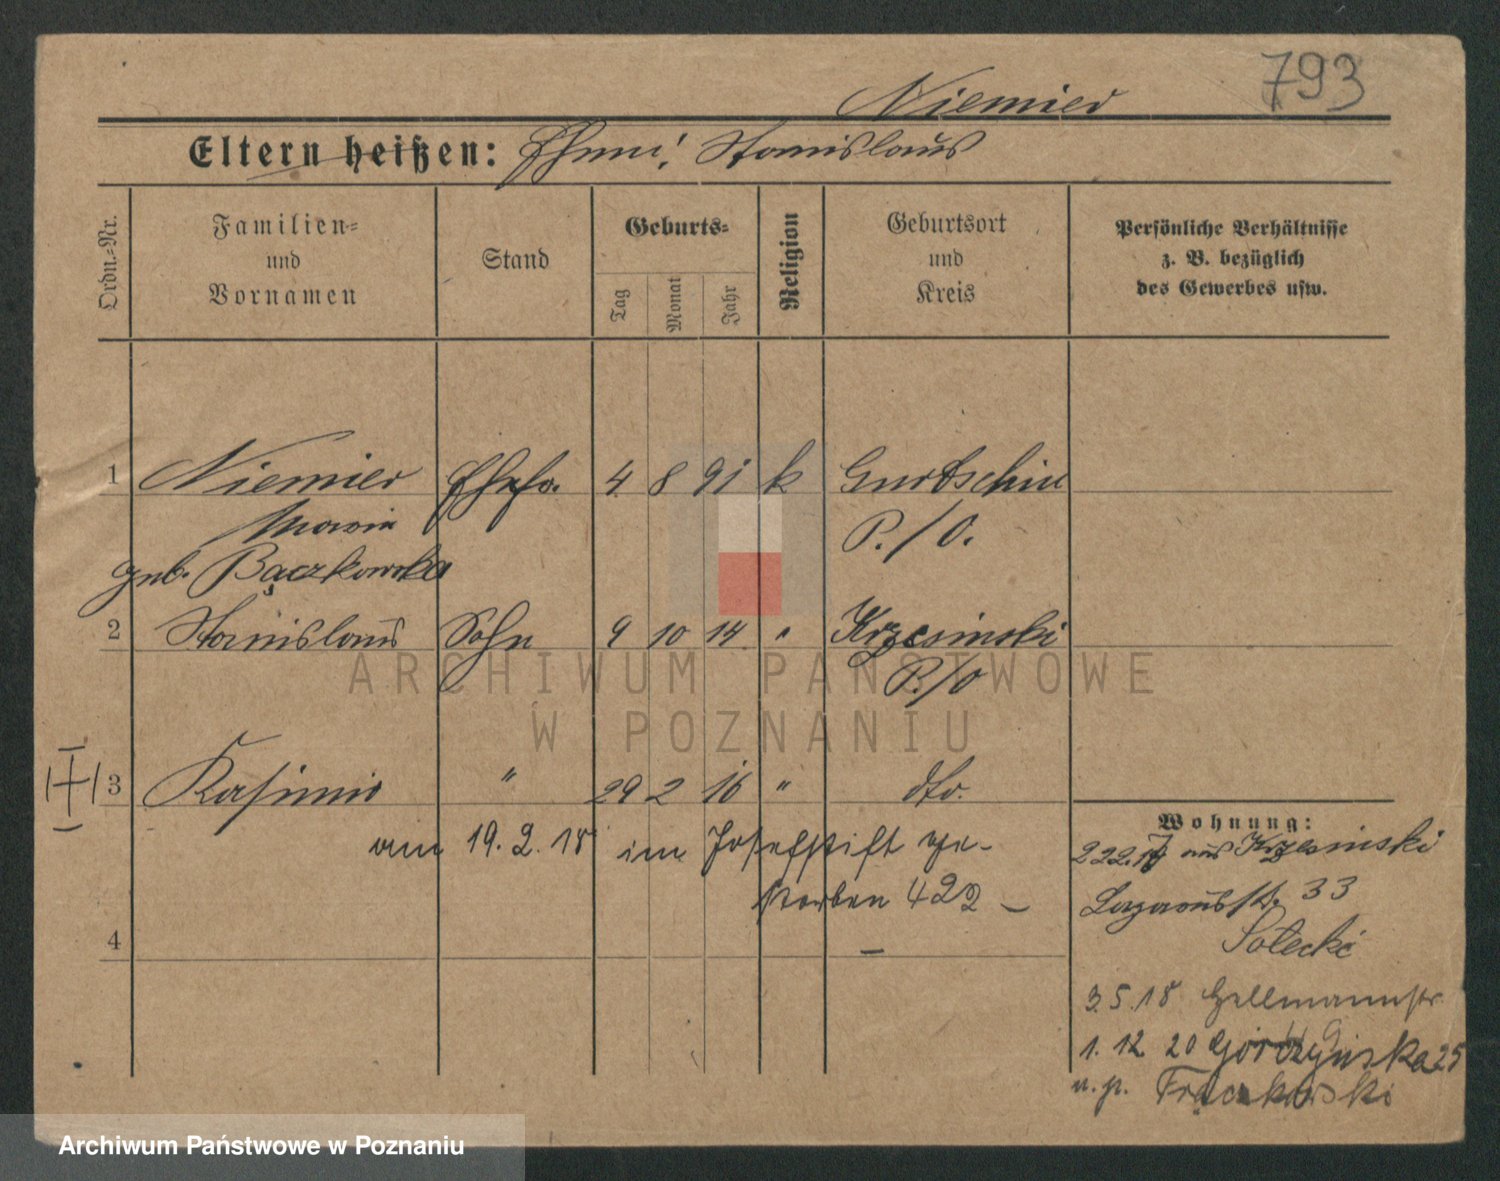 793
Niemier
Eltern heißen: Ehem: Stanislaus
Ordn.-Nr.
Familien- und Vornamen
Stand
Geburts-
Tag
Monat
Jahr
Religion
Geburtsort und Kreis
Persönliche Verhältnisse
z. B. bezüglich
des Gewerbes usw.
1 Niemier Ehefr. 4. 8 91 k Gurtschin
Maria P./O.
geb. Bączkowska
2 Stanislaus Sohn 9 10 14. " Krzesinski
P./O
3 Kasimir " 29 2 16 " dto.
am 19. 2. 18 im Josefstift ge-
storben 422 —
4 —
Wohnung:
aus Krzesinski
Lazarusstr. 33
Sołecki
3.5.18 Hellmannstr
1. 12. 20 Górczyńska 25
u. p. Frąckowski
ARCHIWUM PAŃSTWOWE
W POZNANIU
Archiwum Państwowe w Poznaniu